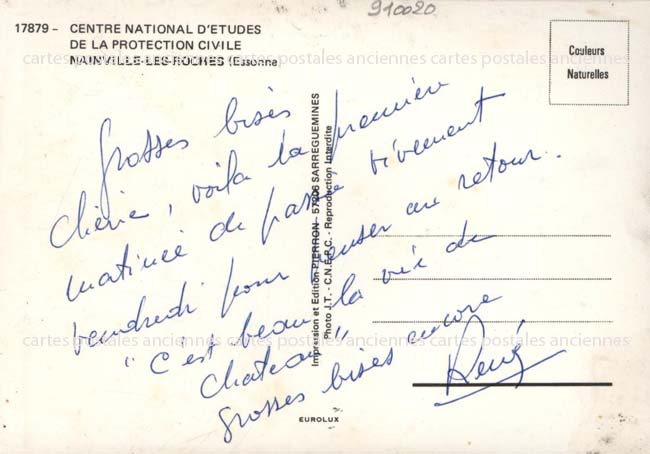 910020
17879 - CENTRE NATIONAL D'ETUDES
DE LA PROTECTION CIVILE
NAINVILLE-LES-ROCHES (Essonne)
Couleurs
Naturelles
cartes postales anciennes cartes postales anciennes cartes postales anciennes
Grosses bises
Chérie, voila la première
matinée de passée vivement
vendredi pour penser au retour.
"C'est beau la vie de
chateau"
grosses bises encore
René
Impression et Edition PIERRON - 57206 SARREGUEMINES
Photo J.T. - C.N.E.P.C. - Reproduction Interdite
cartes postales anciennes cartes postales anciennes cartes postales anciennes
EUROLUX